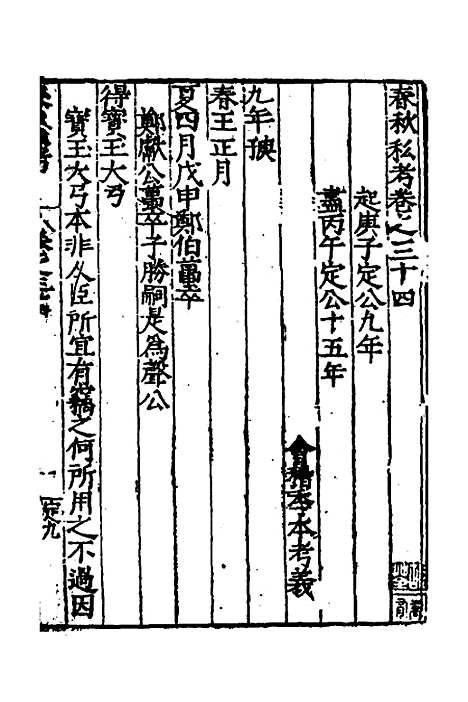 春秋私考卷之三十四
起庚子定公九年
盡丙午定公十五年
會稽季本考義
九年
春王正月
夏四月戊申鄭伯蠆卒
鄭獻公蠆卒子勝嗣是爲聲公
得寶玉大弓
寶玉大弓本非人臣所宜有竊之何所用之不過因
定九